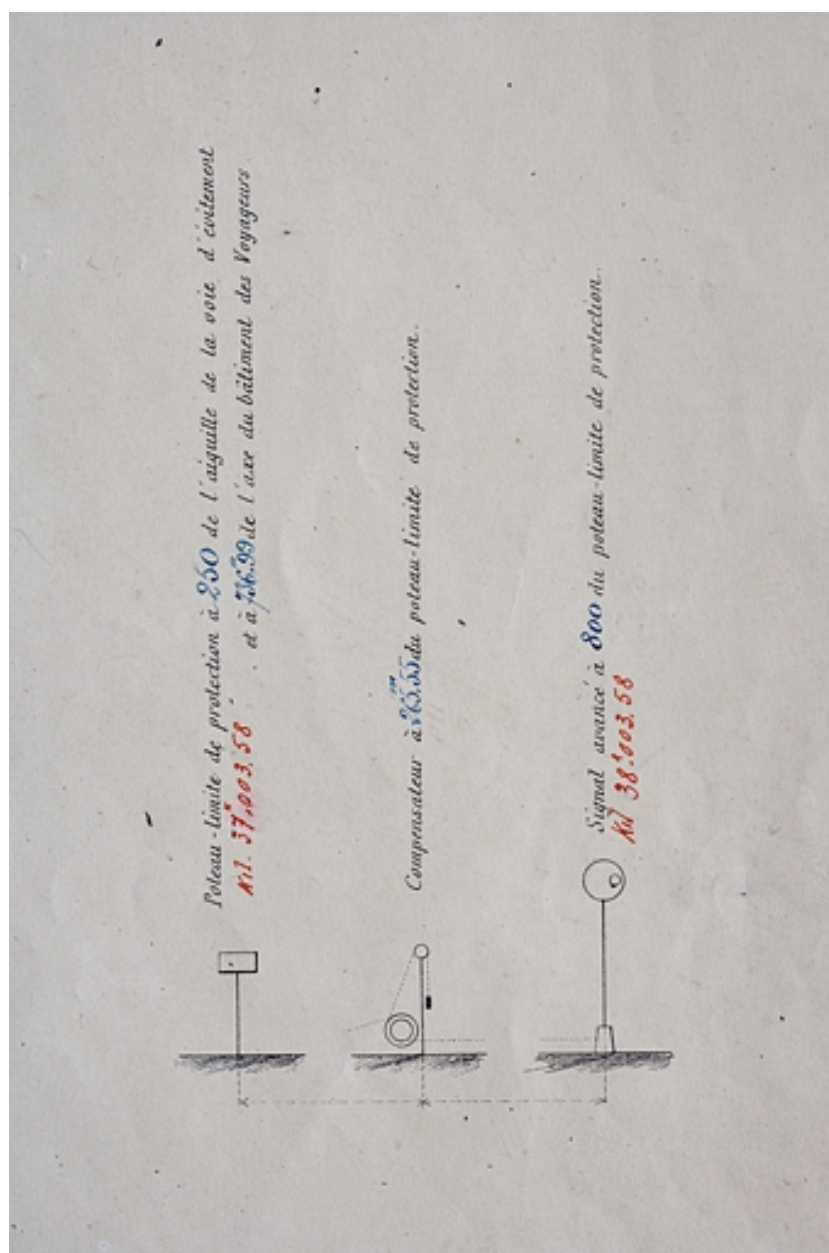 Poteau-limite de protection à 250 de l'aiguille de la voie d'évitement
et à 736.99 de l'axe du bâtiment des Voyageurs
Kil. 37k.003.58
Compensateur à du poteau-limite de protection.
Signal avancé à 800 du poteau-limite de protection.
Kil 38k.003.58